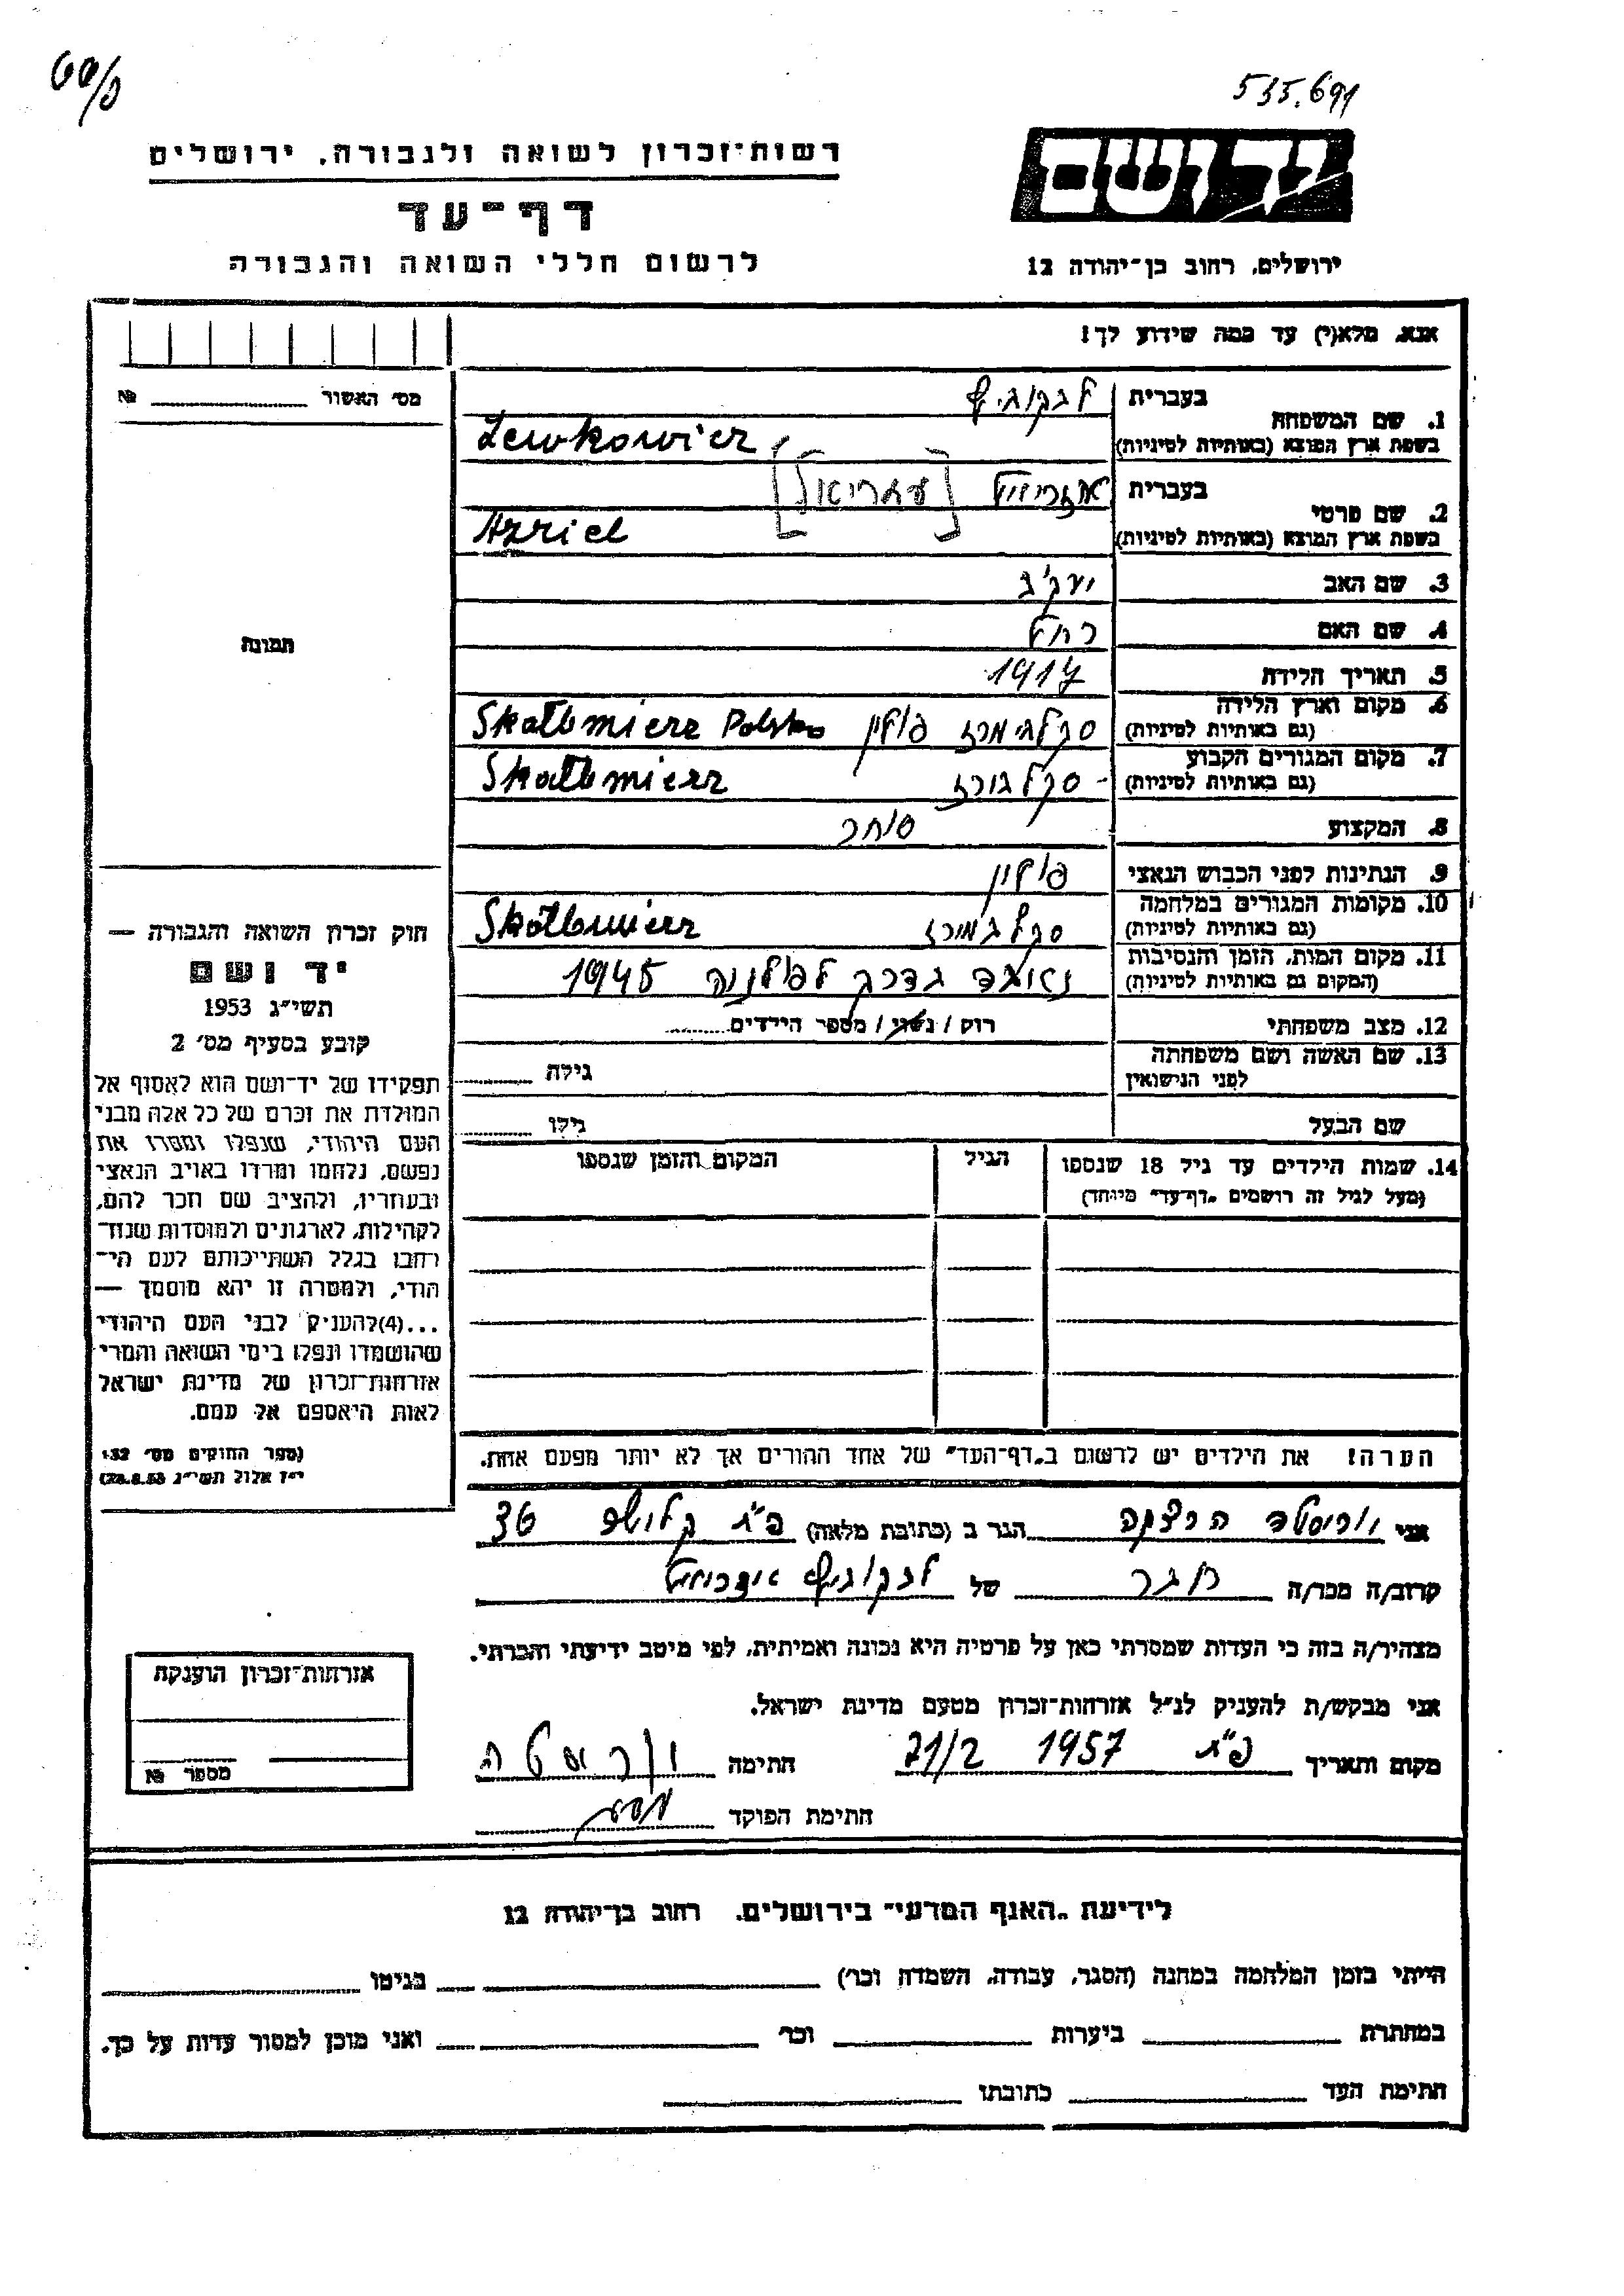 535.691
רשות־זכרון לשואה ולגבורה, ירושלים
יד ושם
דף־עד
לרשום חללי השואה והגבורה
ירושלים, רחוב בן־יהודה 12
אנא, מלא(י) עד כמה שידוע לך!
מס' האשור № 
1. שם המשפחה
בעברית לבקוביץ
בשפת ארץ המוצא (באותיות לטיניות) Lewkowicz
2. שם פרטי
בעברית אזריאל [עזריאל]
בשפת ארץ המוצא (באותיות לטיניות) Azriel
3. שם האב יעקב
4. שם האם רחל
תמונה
5. תאריך הלידה 1917
6. מקום וארץ הלידה
(גם באותיות לטיניות) סקלבימרז פולין Skalbmierz Polska
7. מקום המגורים הקבוע
(גם באותיות לטיניות) Skalbmierz
8. המקצוע סוחר
9. הנתינות לפני הכבוש הנאצי פולין
10. מקומות המגורים במלחמה
(גם באותיות לטיניות) Skalbmierz
11. מקום המות, הזמן והנסיבות
(המקום גם באותיות לטיניות) נאבד בדרך לפולניה 1945
12. מצב משפחתי רווק / נשוי / מספר הילדים
13. שם האשה ושם משפחתה
לפני הנישואין גילה
שם הבעל גילו
14. שמות הילדים עד גיל 18 שנספו
(מעל לגיל זה רושמים "דף־עד" מיוחד)
הגיל
המקום והזמן שנספו
הערה! את הילדים יש לרשום ב"דף־העד" של אחד ההורים אך לא יותר מפעם אחת.
חוק זכרון השואה והגבורה —
יד ושם
תשי"ג 1953
קובע בסעיף מס' 2
תפקידו של יד־ושם הוא לאסוף אל
המולדת את זכרם של כל אלה מבני
העם היהודי, שנפלו ומסרו את
נפשם, נלחמו ומרדו באויב הנאצי
ובעוזריו, ולהציב שם וזכר להם,
לקהילות, לארגונים ולמוסדות שנח־
רבו בגלל השתייכותם לעם הי־
הודי, ולמטרה זו יהא מוסמך —
...(4)להעניק לבני העם היהודי
שהושמדו ונפלו בימי השואה והמרי
אזרחות־זכרון של מדינת ישראל
לאות היאספם אל עמם.
(ספר החוקים מס' 132
י"ז אלול תשי"ג 28.8.53)
אני הגר ב (כתובת מלאה) פ"ת 36
קרוב/ה מכר/ה חבר של לבקוביץ אזריאל
מצהיר/ה בזה כי העדות שמסרתי כאן על פרטיה היא נכונה ואמיתית, לפי מיטב ידיעתי והכרתי.
אני מבקש/ת להעניק לנ"ל אזרחות־זכרון מטעם מדינת ישראל.
מקום ותאריך פ"ת 1957 21/2 חתימה
חתימת הפוקד
אזרחות־זכרון הוענקה
מספר №
לידיעת "האגף המדעי" בירושלים, רחוב בן־יהודה 12
הייתי בזמן המלחמה במחנה (הסגר, עבודה, השמדה וכו') בגיטו
במחתרת ביערות וכו' ואני מוכן למסור עדות על כך.
חתימת העד כתובתו